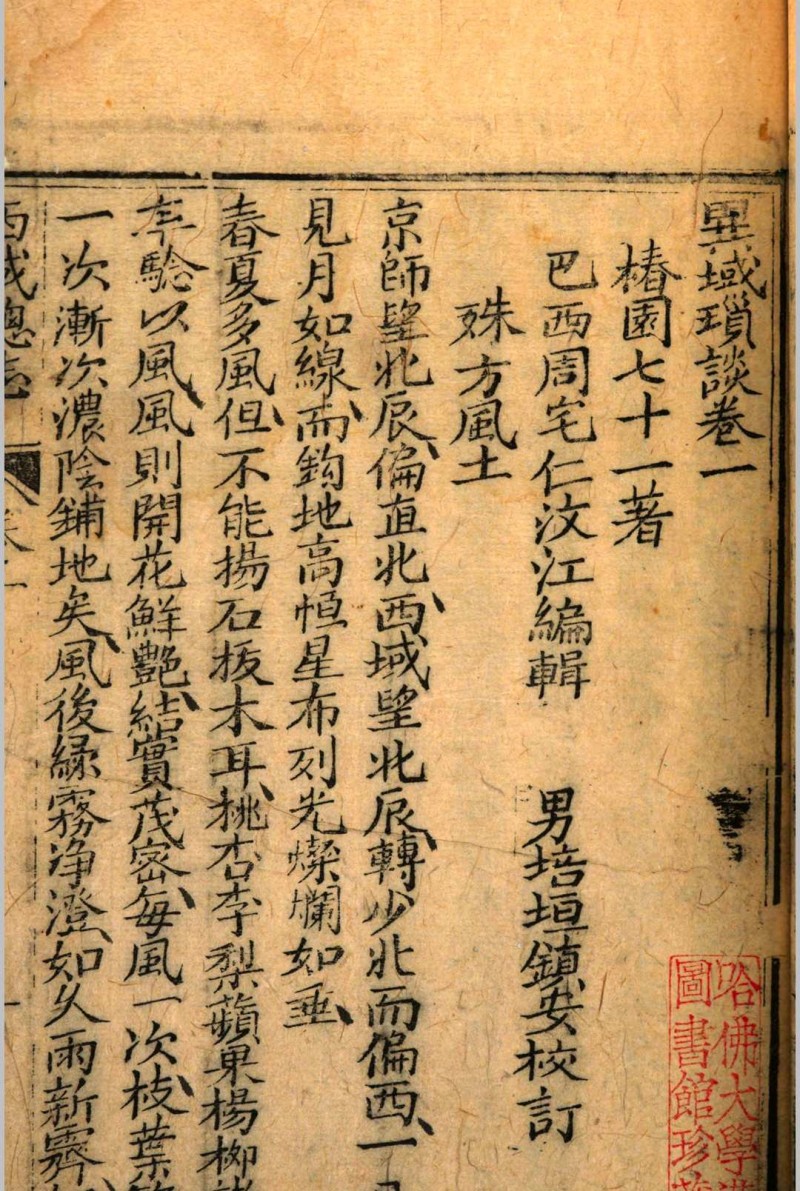 異域瑣談卷一
椿園七十一著
巴西周宅仁汶江編輯 男培垣鎮安校訂
殊方風土
京師朢北辰、偏直北、西域朢北辰、轉少北而偏西、一
見月如線、而鈎地高恒星布列光燦爛如垂、
春夏多風、但不能揚石拔木耳、桃杏李梨蘋果楊柳
率騐以風、風則開花鮮艷、結實茂密、每風一次、枝葉
一次漸次濃陰鋪地矣、風後緑霧净澄、如久雨新霽、
西域總志
卷一
哈佛大學
圖書館珍